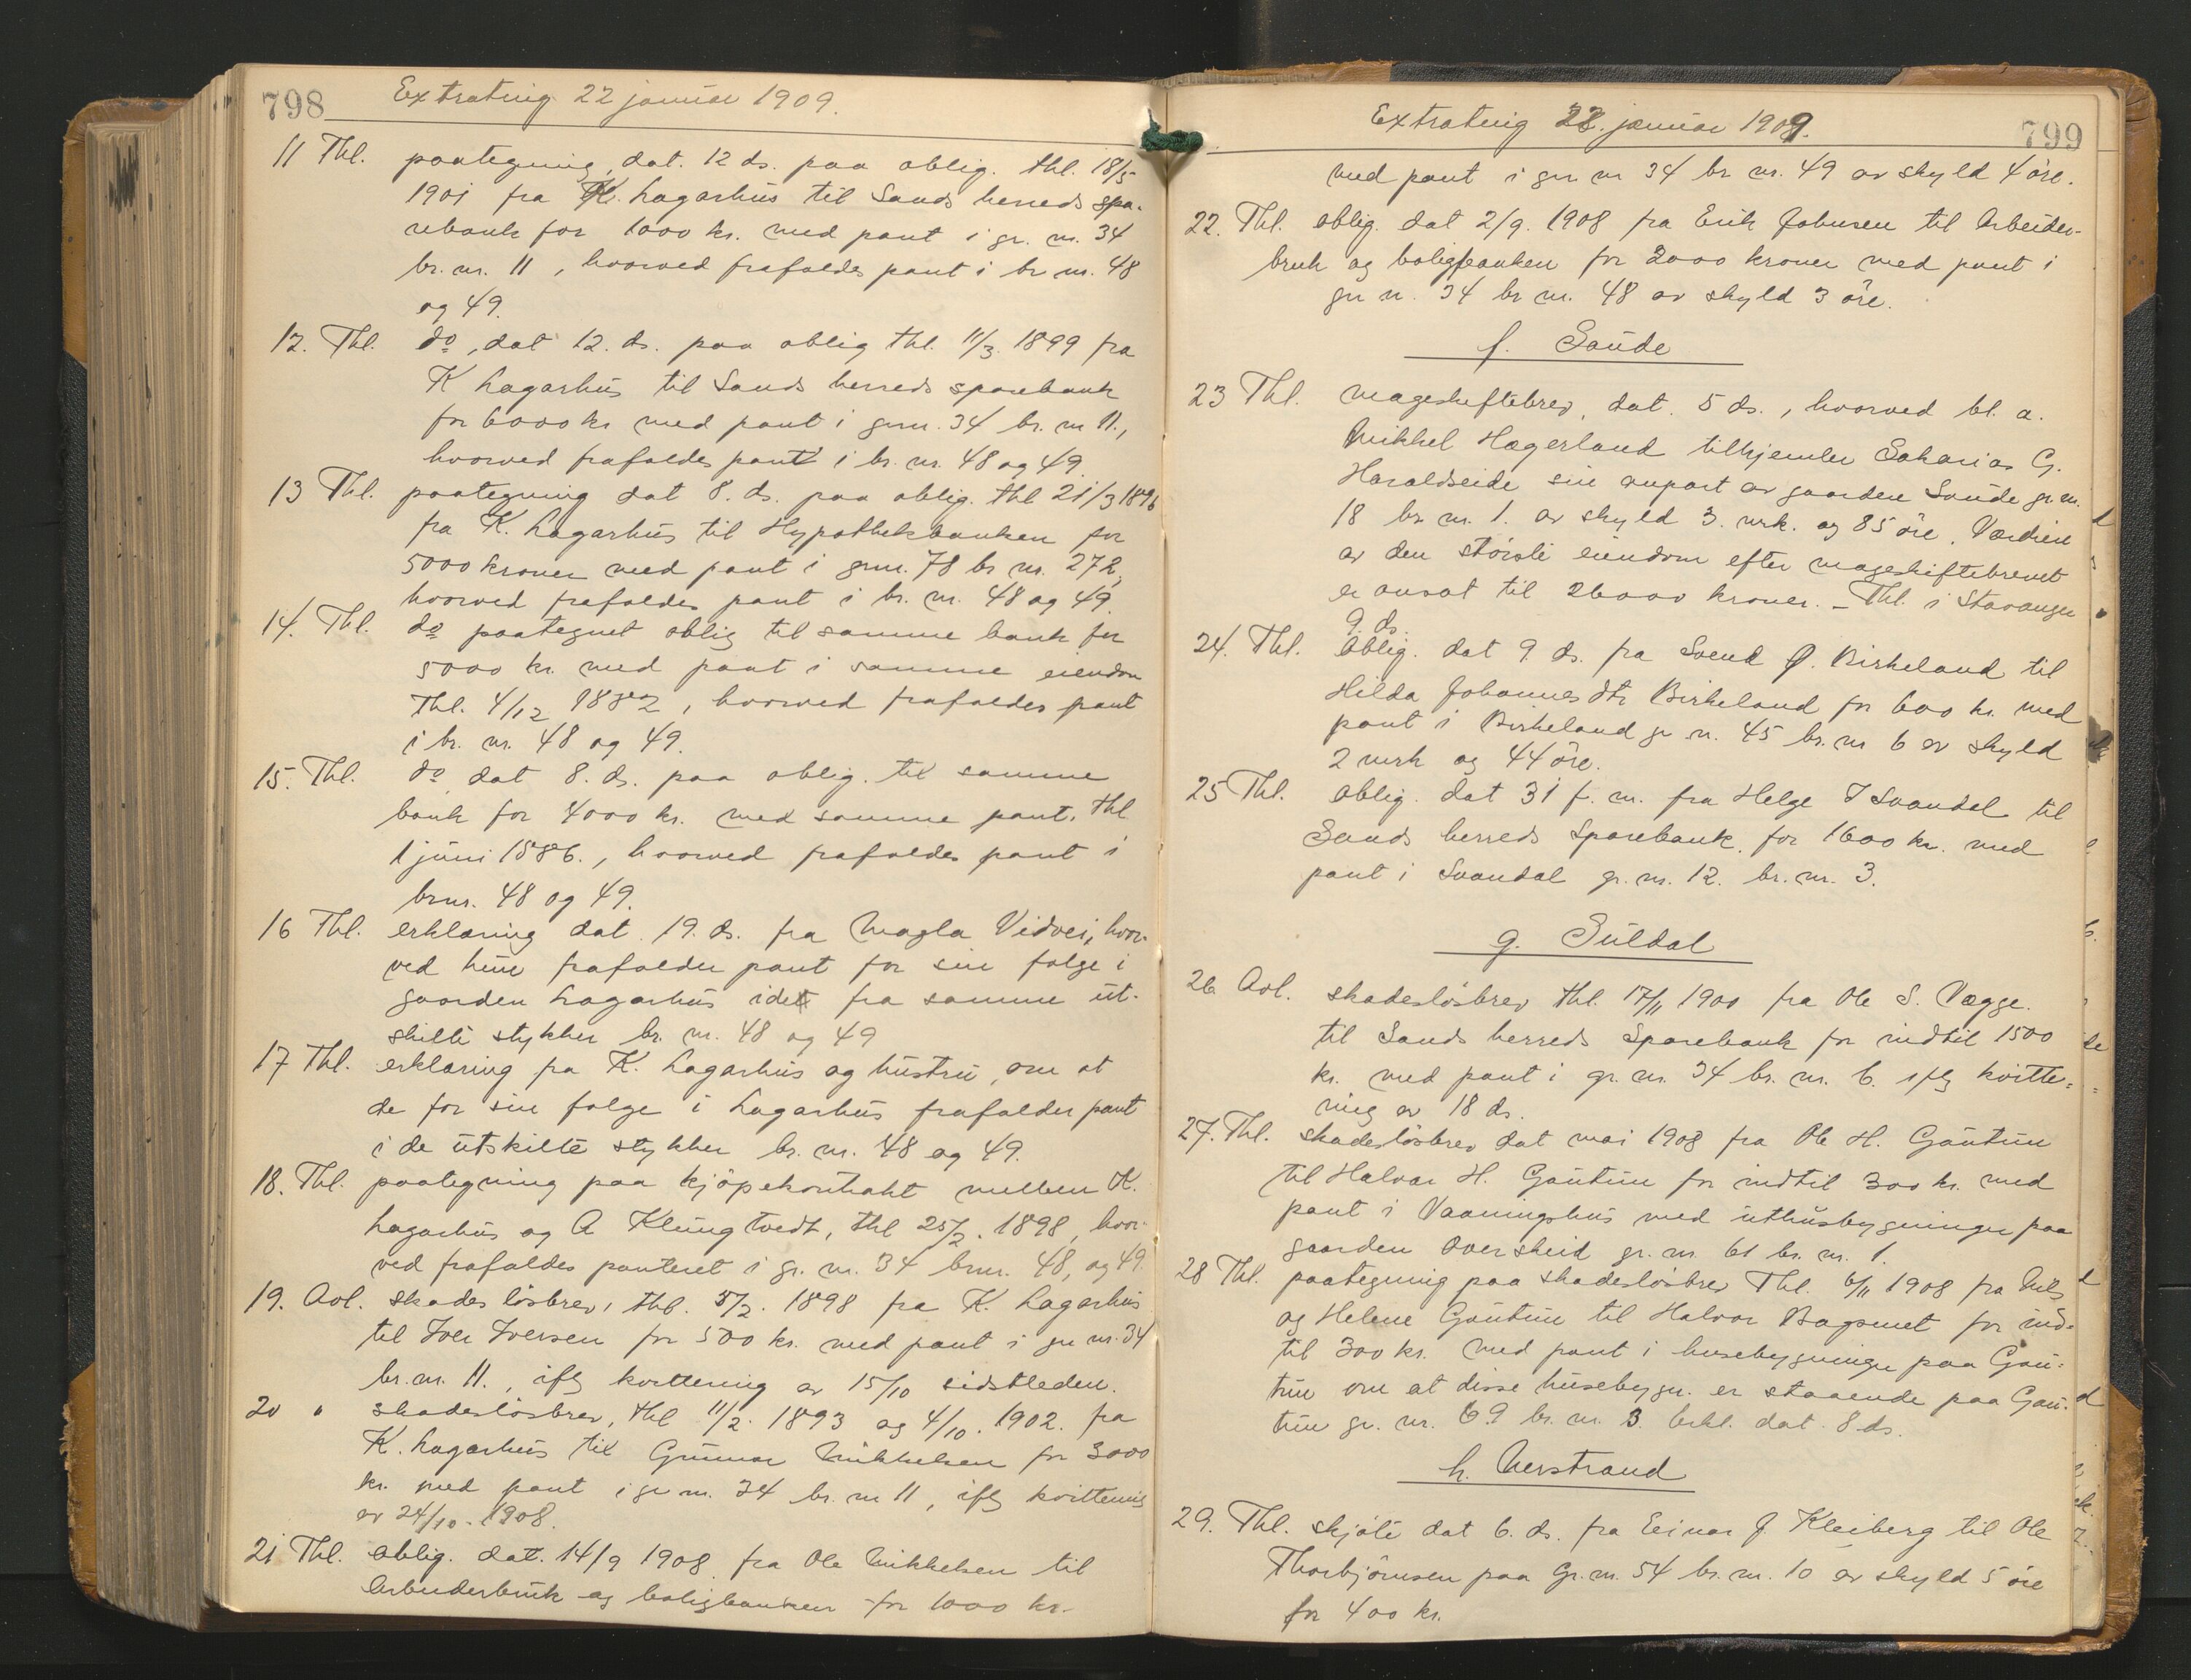 798 Extrating 22 januar 1909.
11 Thl. paategning, dat. 12 ds. paa oblig. thl. 18/5
1901 fra K. Lagarhus til Sands herreds spa-
rebank for 1000 kr. med pant i gr. nr. 34
br. nr. 11, hvorved frafaldes pant i br nr. 48
og 49.
12. Thl. do, dat 12. ds. paa oblig thl. 11/3 1899 fra
K Lagarhus til Sands herreds sparebank
for 6000 kr med pant i gnr. 34 br. nr 11.,
hvorved frafaldes pant i br. nr. 48 og 49.
13 Thl. paategning dat 8. ds. paa oblig. thl 21/3 1896
fra K. Lagarhus til Hypothekbanken for
5000 kroner med pant i gnr. 78 br nr. 272,
hvorved frafaldes pant i br. nr. 48 og 49.
14. Thl. do paategnet oblig til samme bank for
5000 kr. med pant i samme eiendom
Thl. 4/12 1882, hvorved frafaldes pant
i br. nr. 48 og 49.
15. Thl. do dat 8. ds. paa oblig. til samme
bank for 4000 kr. med samme pant. thl
1 juni 1886., hvorved frafaldes pant i
brnr. 48 og 49.
16 Thl. erklæring dat. 19. ds. fra Magla Vidvei, hvor-
ved hun frafalder pant for sin følge i
gaarden Lagarhus idet fra samme ut-
skilte stykker br. nr. 48 og 49
17 Thl. erklæring fra K. Lagarhus og hustru, om at
de for sin følge i Lagarhus frafalder pant
i de utskilte stykker br. nr. 48 og 49.
18. Thl. paategning paa kjøpekontrakt mellem K.
Lagarhus og A Klungtvedt, thl 25/2. 1898, hvor-
ved frafaldes panteret i gr. nr. 34 brnr. 48, og 49.
19. Avl. skadesløsbrev, thl. 5/2. 1898 fra K. Lagarhus
til Iver Iversen for 500 kr. med pant i gr nr. 34
br. nr. 11., iflg kvittering av 15/10 sidstleden.
20 " skadesløsbrev, thl 11/2. 1893 og 4/10. 1902. fra
K. Lagarhus til Gunnar Mikkelsen for 3000
kr. med pant i gr nr. 34 br. nr 11, iflg kvittering
av 24/10. 1908.
21 Thl. oblig. dat. 14/9 1908 fra Ole Mikkelsen til
Arbeiderbruk og boligbanken for 1000 kr.
Extrating 22. januar 1909. 799
med pant i gnr nr 34 br nr. 49 av skyld 4 øre.
22. Thl. oblig. dat 2/9. 1908 fra Erik Johnsen til Arbeider-
bruk og boligbanken for 2000 kroner med pant i
gr n. 34 br nr. 48 av skyld 3 øre.
f. Saude
23 Thl. mageskiftebrev, dat. 5 ds., hvorved bl. a.
Mikkel Hagerland tilhjemler Sakarias G.
Haraldseide sin anpart av gaarden Saude gr. nr.
18 br. nr. 1. av skyld 3. mrk. og 85 øre. Værdien
av den største eiendom efter mageskiftebrevet
er ansat til 26000 kroner. - Thl. i Stavanger
9. ds.
24. Thl. oblig. dat 9 ds. fra Svend Ø. Birkeland til
Hilda Johannesdtr Birkeland for 600 kr. med
pant i Birkeland gr n. 45 br. nr 6 av skyld
2 mrk og 44 øre.
25 Thl. oblig. dat 31 f. m. fra Helge I Svandal til
Sands herreds Sparebank. for 1600 kr. med
pant i Svandal gr. nr. 12. br. nr. 3.
g. Suldal
26 Avl. skadesløsbrev thl. 17/11 1900 fra Ole S. Vægge.
til Sands herreds Sparebank for indtil 1500
kr. med pant i gr. nr. 34 br. nr. 6. iflg kvitte-
ring av 18 ds.
27. Thl. skadesløsbrev dat mai 1908 fra Ole H. Gautun
til Halvar H. Gautun for indtil 300 kr. med
pant i Vaaningshus med uthusbygninger paa
gaarden Oversheid gr. nr. 61 br. nr. 1.
28 Thl. paategning paa skadesløsbrev Thl. 6/11 1908 fra Nils
og Helene Gautun til Halvor Bagsmet for ind-
til 300 kr. med pant i husebygninger paa Gau-
tun om at disse husebygn. er staaende paa Gau-
tun gr. nr. 69 br. nr. 3. Erkl. dat. 8 ds.
h. Nerstrand
29. Thl. skjøte dat 6. ds. fra Einar J. Kleiberg til Ole
Thorbjørnsen paa Gr. nr. 54 br. nr. 10 av skyld 5 øre
for 400 kr.